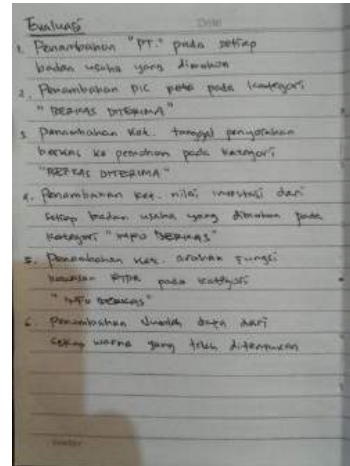 Evaluasi
1. Penambahan "PT." pada setiap
badan usaha yang dimohon
2. Penambahan PIC peta pada kategori
"BERKAS DITERIMA"
3. Penambahan Ket. tanggal penyerahan
berkas ke pemohon pada kategori
"BERKAS DITERIMA"
4. Penambahan Ket. nilai investasi dari
setiap badan usaha yang dimohon pada
kategori "INFO BERKAS"
5. Penambahan Ket. arahan fungsi
kawasan RTRW pada kategori
"INFO BERKAS"
6. Penambahan Jumlah data dari
setiap warna yang telah ditentukan